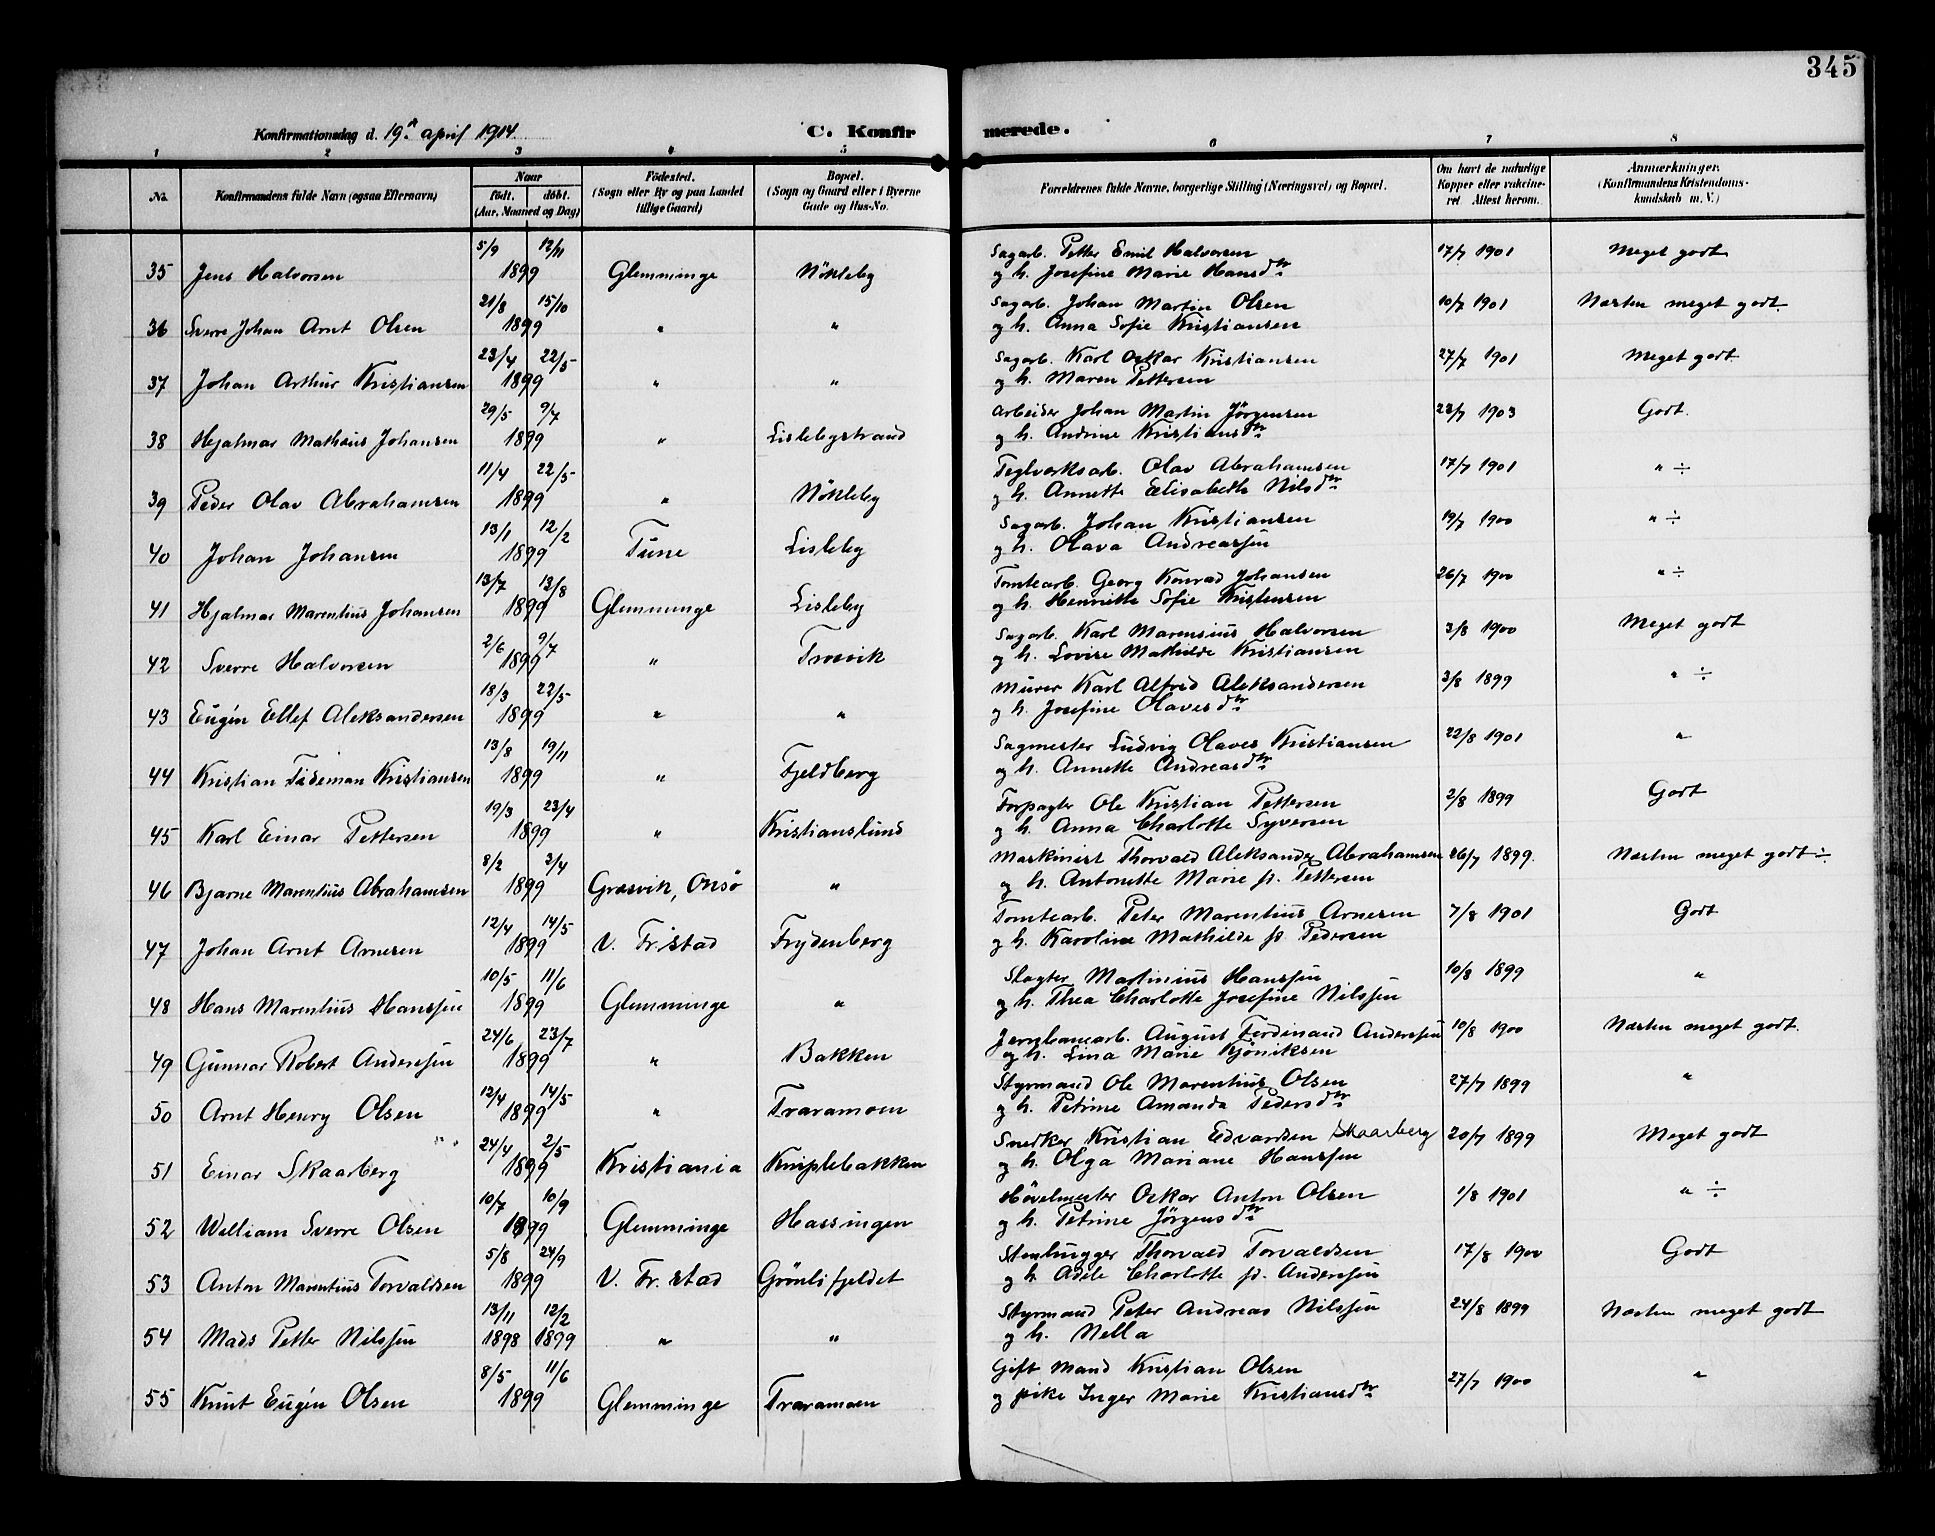 345
Konfirmationsdag d. 19. april 1914. C. Konfirmerede.
1 2 3 4 5 6 7 8
No. Konfirmandens fulde Navn (ogsaa Efternavn) Naar født. døbt. (Aar, Maaned og Dag) Fødested. (Sogn eller By og paa Landet tillige Gaard) Bopæl. (Sogn og Gaard eller i Byerne Gade og Hus-No. Forældrenes fulde Navne, borgerlige Stilling (Næringsvei) og Bopæl. Om havt de naturlige Kopper eller vaccineret Attest herom. Anmærkninger. (Konfirmandens Kristendomskundskab m. V.)
5/9 12/11 Sagarb. Petter Emil Halvorsen 17/7 1901 Meget godt
35 Jens Halvorsen 1899 Glemminge Nökleby og h. Josefine Marie Hansdtr
21/8 15/10 Sagarb. Johan Martin Olsen 10/7 1901 Næsten meget godt.
36 Sverre Johan Arnt Olsen 1899 " " og h. Anna Sofie Kristiansen
23/4 22/5 Sagarb. Karl Oskar Kristiansen 27/7 1901 Meget godt
37 Johan Arthur Kristiansen 1899 " " og h. Maren Pettersen
29/5 9/7 Arbeider Johan Martin Jörgensen 23/7 1903 Godt.
38 Hejalmar Mathæus Johansen 1899 " Lislebystrand og h. Andrine Kristiansdtr
11/4 22/5 Teglverksarb. Olav Abrahamsen 17/7 1901 " ÷
39 Peder Olav Abrahamsen 1899 " Nökleby og h. Annette Elisabeth Nilsdtr
13/1 12/2 Sagarb. Johan Kristiansen 19/7 1900 " ÷
40 Johan Johansen 1899 Tune Lisleby og h. Olava Andreassen
13/7 13/8 Tomtearb. Georg Konrad Johansen 26/7 1900 " ÷
41 Hjalmar Marentius Johansen 1899 Glemminge Lisleby og h. Henriette Sofie Kristensen
2/6 9/7 Sagarb. Karl Marensius Halvorsen 3/8 1900 Meget godt
42 Sverre Halvorsen 1899 " Trosvik og h. Lovise Mathilde Kristiansen
18/3 22/5 Murer Karl Alfred Aleksandersen 3/8 1899 " ÷
43 Eugén Ellef Aleksandersen 1899 " " og h. Josefine Olavesdtr
13/8 19/11 Sagmester Ludvig Olaves Kristiansen 22/8 1901 "
44 Kristian Tideman Kristiansen 1899 " Fjeldberg og h. Annette Andreasdtr
19/3 23/4 Forpagter Ole Kristian Pettersen 2/8 1899 Godt
45 Karl Einar Pettersen 1899 " Kristianslund og h. Anna Charlotte Syversen
8/2 3/4 Maskinist Thorvald Aleksander Abrahamsen 26/7 1899. Næsten meget godt ÷
46 Bjarne Marentius Abrahamsen 1899 Gresvik, Onsö " og h. Antonette Marie f. Pettersen
12/4 14/5 Tomtearb. Peter Marentius Arnesen 7/8 1901 Godt
47 Johan Arnt Arnesen 1899 V. Fr.stad Frydenberg og h. Karoline Mathilde f. Pedersen
10/5 11/6 Slagter Martinius Hanssen 10/8 1899 "
48 Hans Marentius Hanssen 1899 Glemminge " og h. Thea Charlotte Josefine Nilssen
24/6 23/7 Jernbanearb. August Ferdinand Anderssen 10/8 1900 Næsten meget godt.
49 Gunnar Robert Anderssen 1899 " Bakken og h. Lina Marie Kjöniksen
12/4 14/5 Styrmand Ole Marentius Olsen 27/7 1899 "
50 Arnt Henry Olsen 1899 " Traramoen og h. Petrine Amanda Pedersdtr
24/4 2/5 Snedker Kristian Edvardsen Skaarberg 20/7 1899 Meget godt
51 Einar Skaarberg 1899 Kristiania Kniplebakken og h. Olga Mariane Hanssen
10/7 10/9 Hövelmester Oskar Anton Olsen 1/8 1901 " ÷
52 William Sverre Olsen 1899 Glemminge Hassingen og h. Petrine Jörgensdtr
5/8 24/9 Stenhugger Thorvald Torvaldsen 17/8 1900 Godt
53 Anton Marentius Torvaldsen 1899 V. Fr.stad Grönlifjeldet og h. Adele Charlotte f. Anderssen
13/11 12/2 Styrmand Peter Andreas Nilssen 24/8 1899 Næsten meget godt
54 Mads Petter Nilssen 1898 1899 " " og h. Nella
8/5 11/6 Gift mand Kristian Olsen 27/7 1900 "
55 Knut Eugén Olsen 1899 Glemminge Traramoen og pike Inger Marie Kristiansdtr